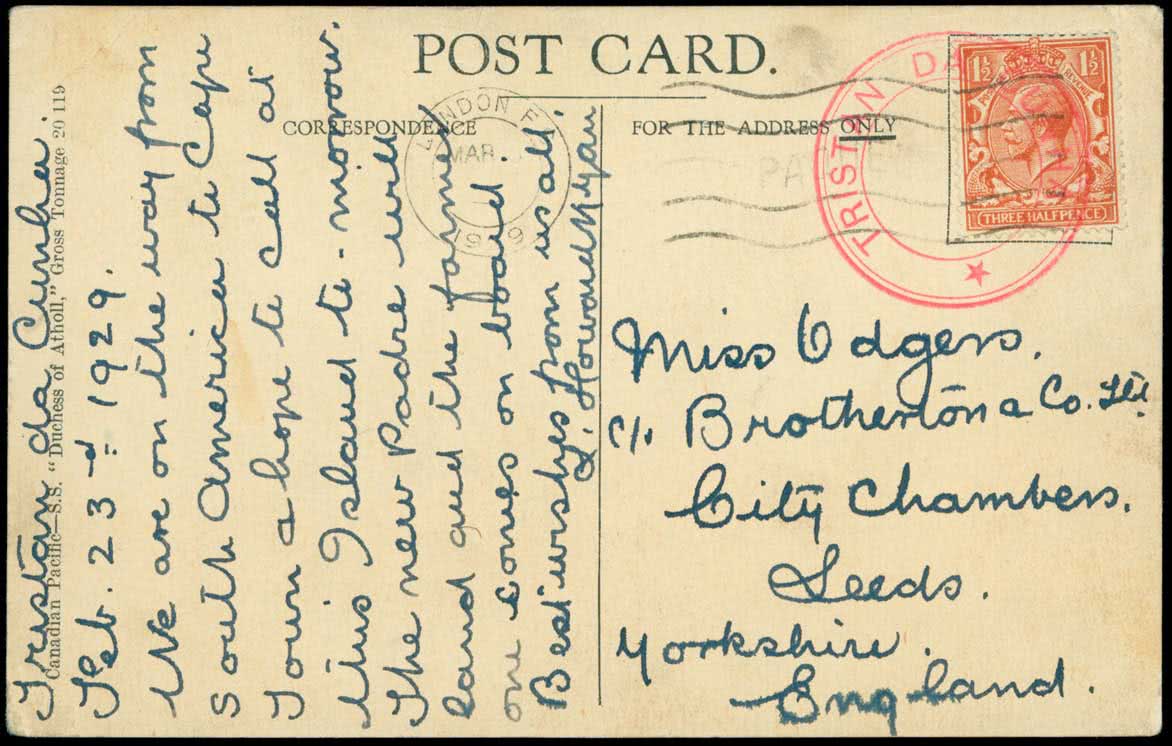 POST CARD.
CORRESPONDENCE
FOR THE ADDRESS ONLY
Canadian Pacific—S.S. "Duchess of Atholl," Gross Tonnage 20 119
Tristan da Cunha.
Feb. 23rd 1929.
We are on the way from
South America to Cape
Town & hope to call at
this Island to-morrow.
The new Padre will
land and the former
one comes on board.
Best wishes from us all.
Howard Ryan
Miss Odgers.
c/o Brotherton & Co. Ltd.
City Chambers.
Leeds.
Yorkshire.
England.
LONDON
MAR
1929
PA
TRISTAN DA
1½ 1½
REVENUE
THREE HALFPENCE